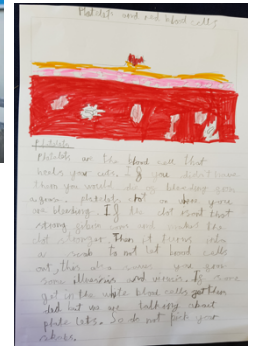 Platelets and red blood cells
Platelets
Platelets are the blood cell that
heals your cuts. If you didn't have
them you would die of bleeding from
a graze. platelets clot on when you're
are bleeding. If the clot isnt that
strong come and makes the
clot stronger. Then it turns into
a scab to not let blood cells
out, this is a
some and
get in the white blood cells get them
but we are talking about
platelets. So do not pick your
scabs.